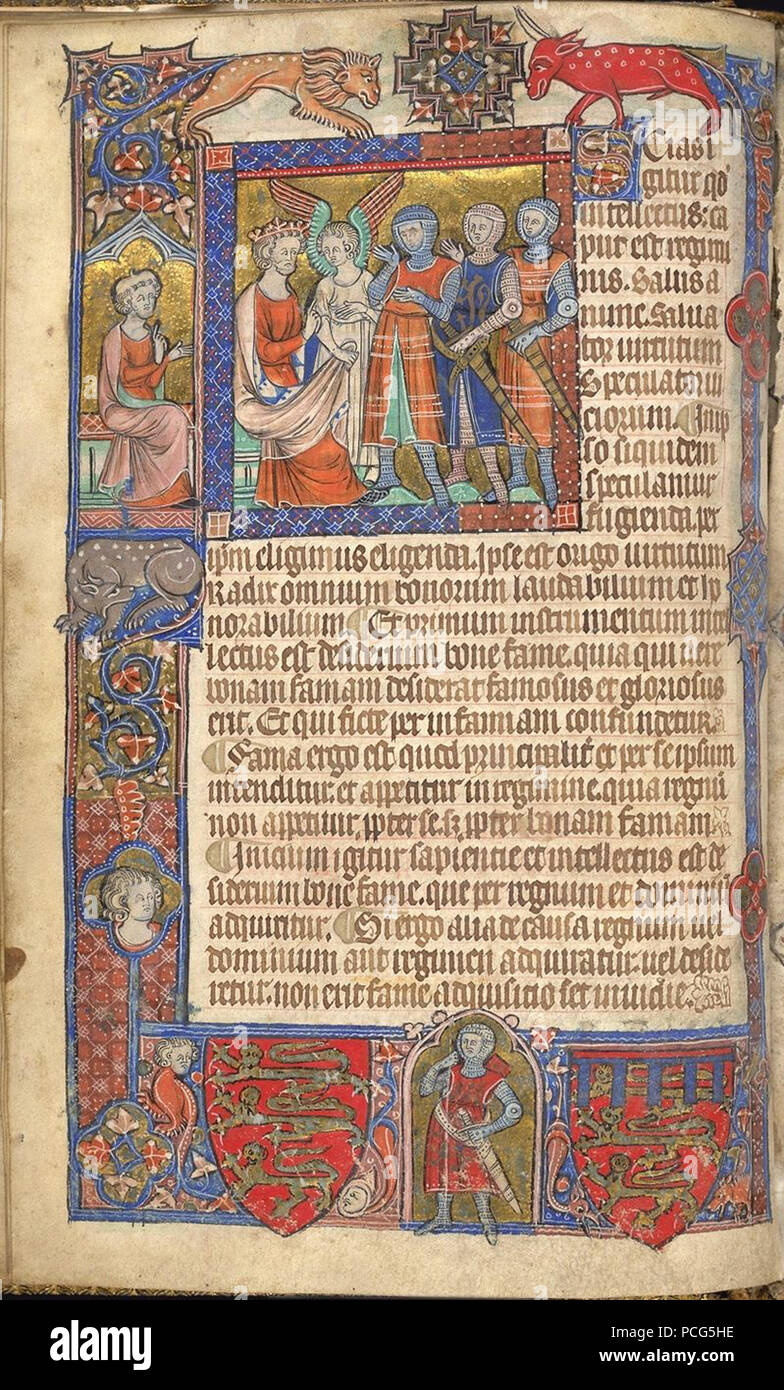 Scias i
gitur qd'
intellectus: ca
put est regimi
nis. Salus a
nime. Salua
tor uirtutum
Speculator ui
ciorum. Imip
so siquidem
speculamur
fugienda. per
ipm eligimus eligenda. Ipse est origo uirtutum
Radix omnium bonorum laudabilium et ho
norabilium Et primum instrumentum intel
lectus est desiderium bone fame. quia qui uere
bonam famam desiderat famosus et gloriosus
erit. Et qui ficte per infamiam confundetur.
Fama ergo est quod principalit' et per se ipsum
intenditur. et appetitur in regimine. quia regnu
non appetitur, ppter se. s; ppter bonam famam
Inicium igitur sapientie et intellectus est de
siderium bone fame. que per regnum et dominiu
adquiritur. Si ergo alia de causa regnum uel
dominium aut regimen adquiratur. uel deside
retur. non erit fame adquisitio set inuidie.
alamy
alamy stock photo
PCG5HE
www.alamy.com